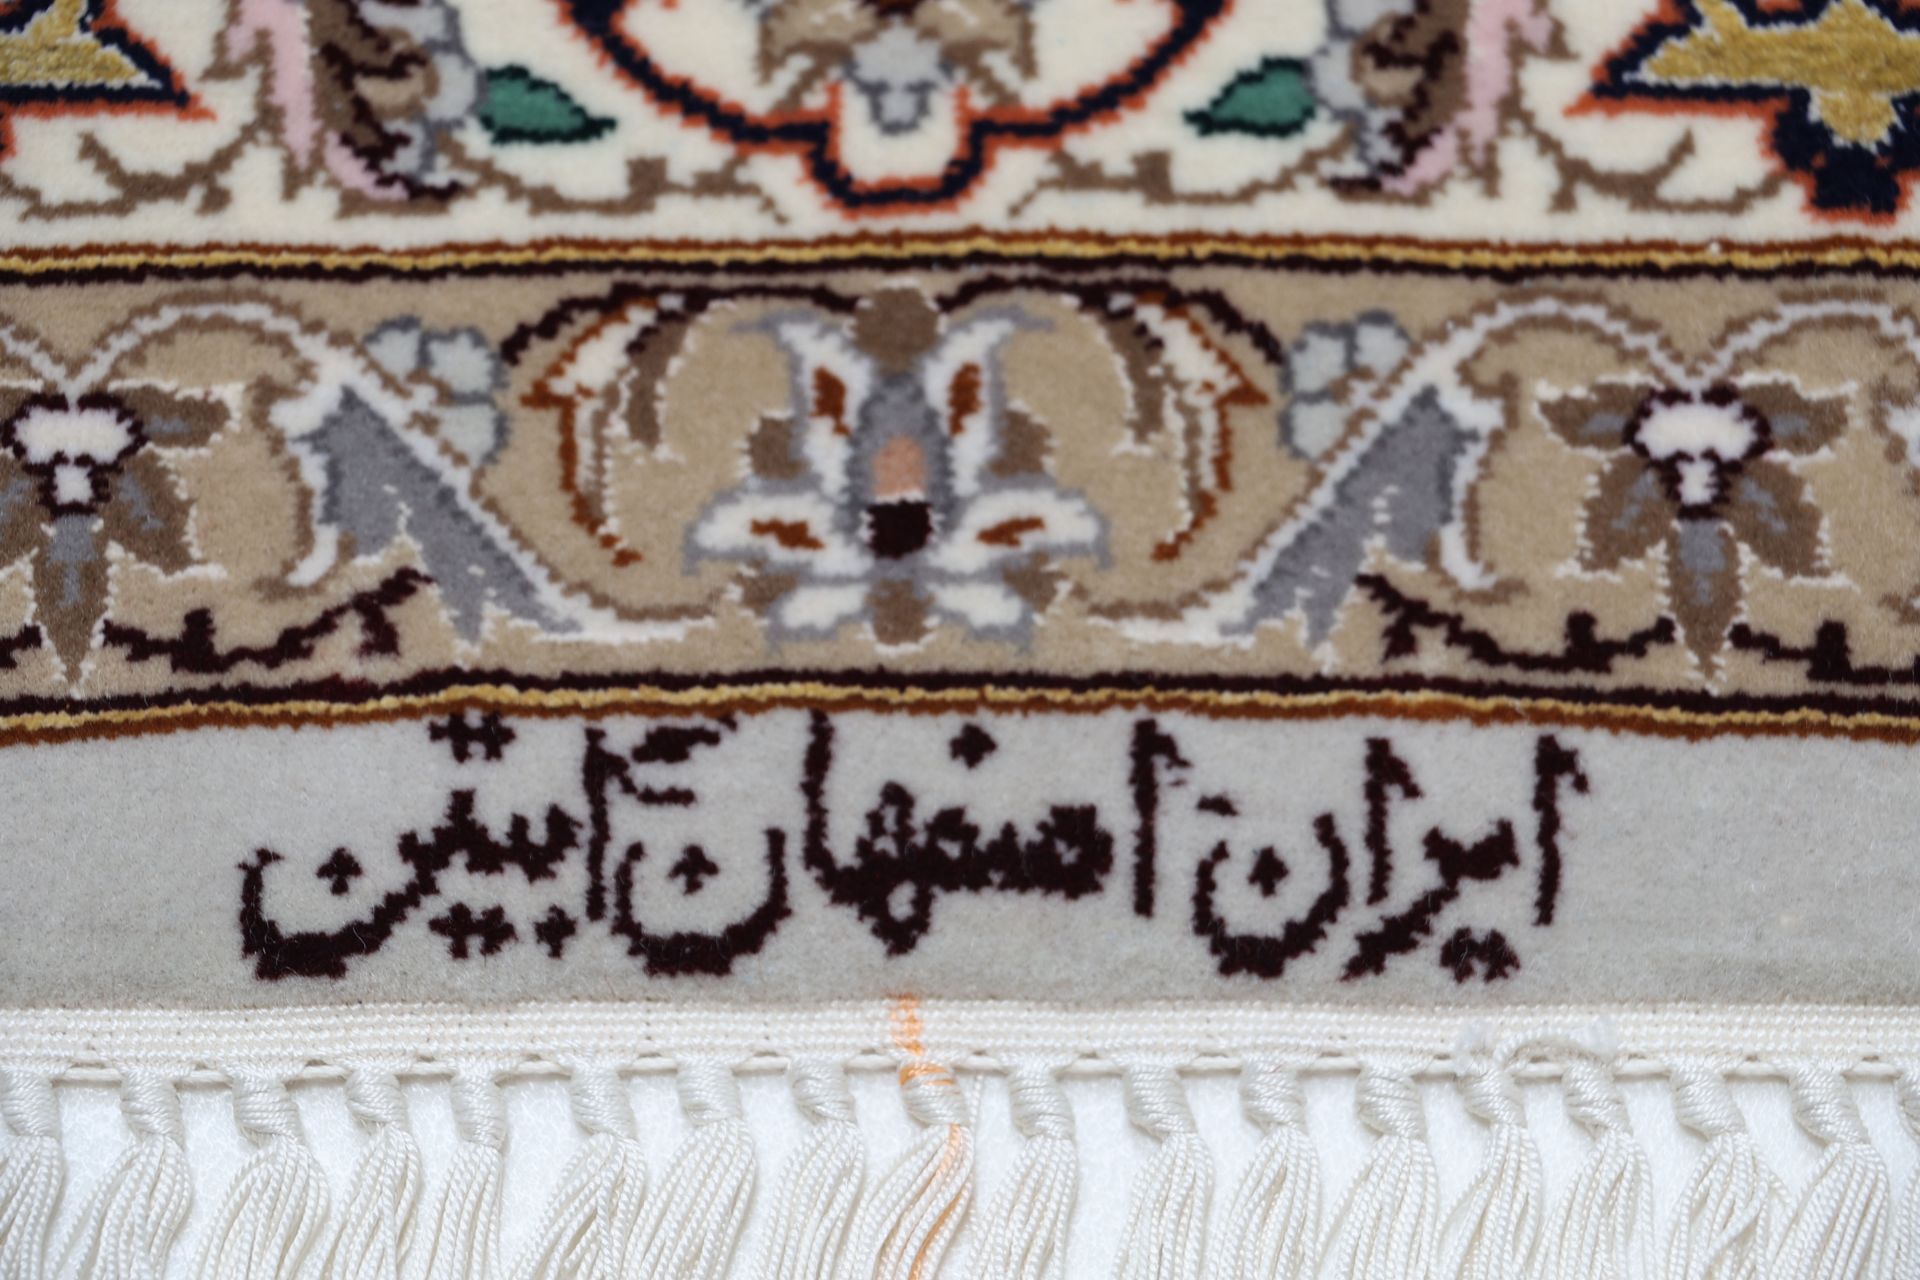 ایران اصفهان آبتین